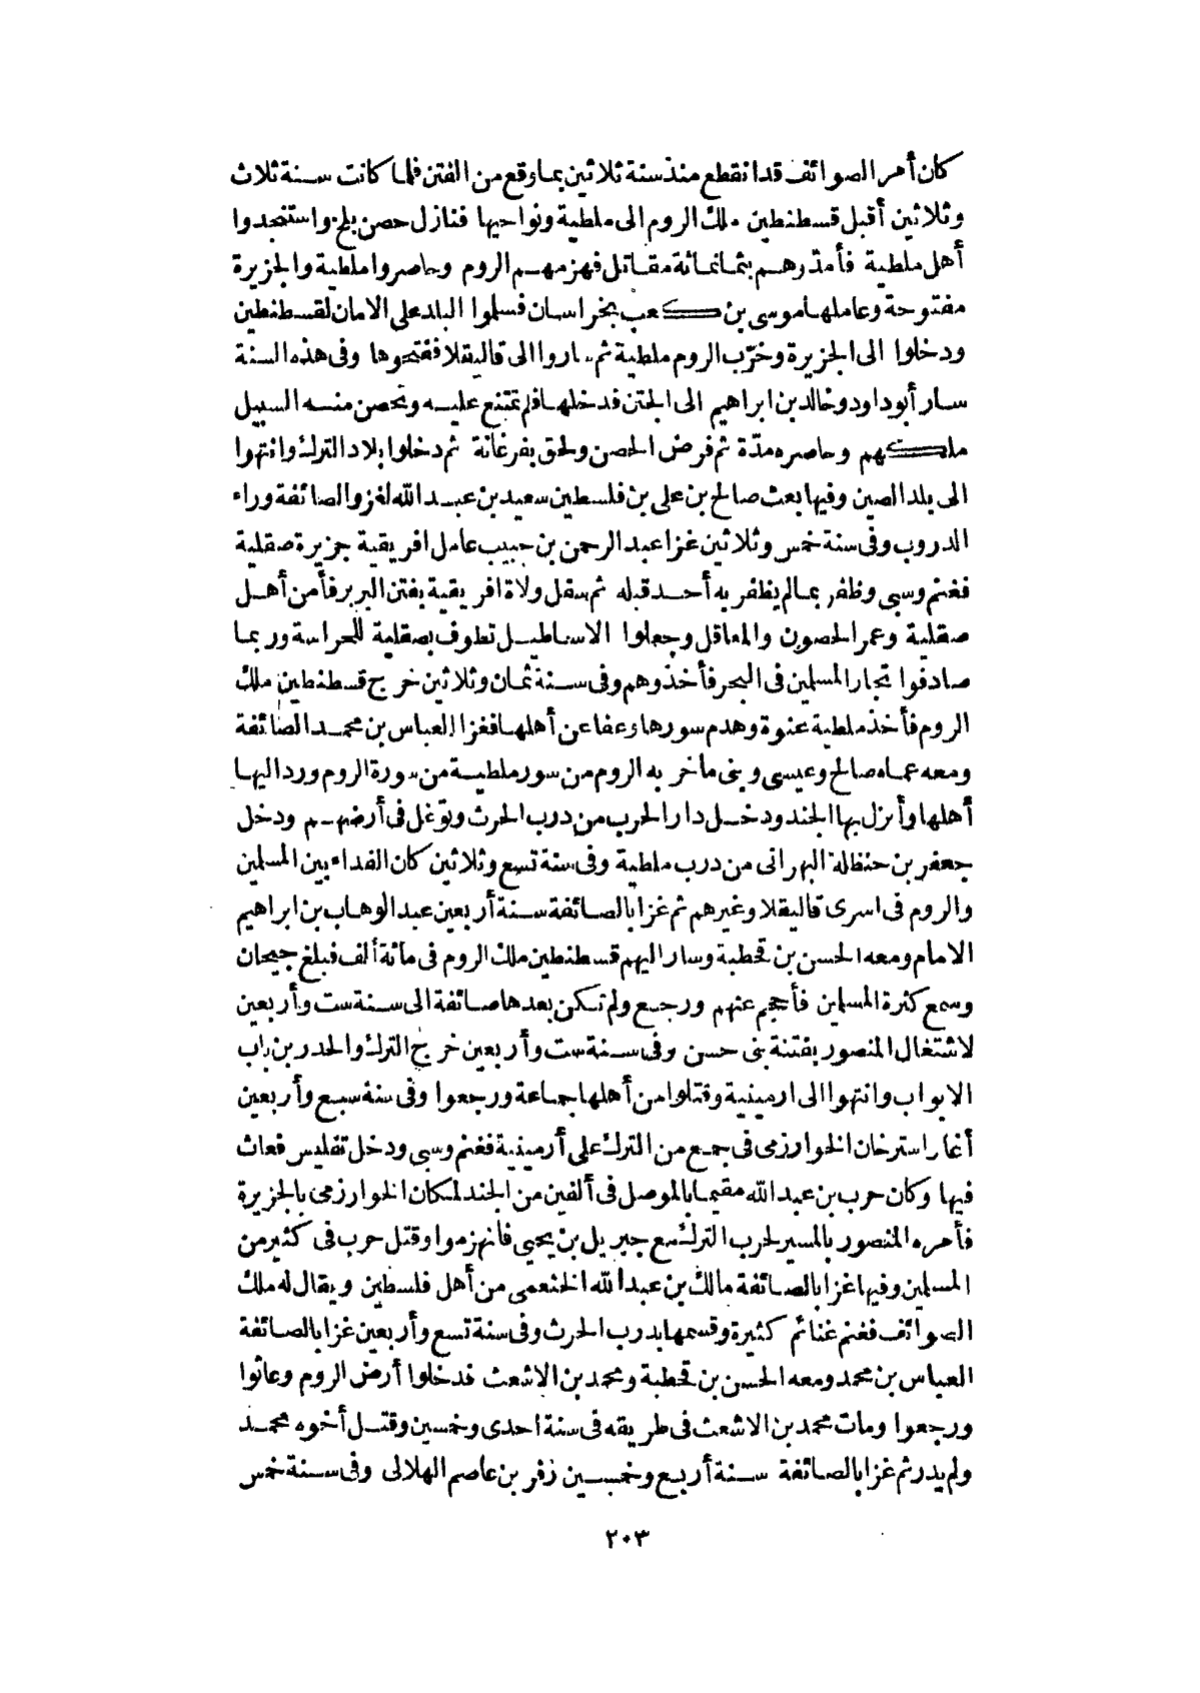 كان أمر الصوائف قد انقطع منذ سنة ثلاثين بما وقع من الفتن فلما كانت سنة ثلاث
وثلاثين أقبل قسطنطين ملك الروم الى ملطية ونواحيها فنازل حصن بلخ واستنجدوا
أهل ملطية فأمدّرهم بثمانمائة مقاتل فهزمهم الروم وحاصروا ملطية والجزيرة
مفتوحة وعاملها موسى بن كعب بخراسان فسلموا البلد على الامان لقسطنطين
ودخلوا الى الجزيرة وخرّب الروم ملطية ثم ساروا الى قاليقلا ففتحوها وفى هذه السنة
سار أبو داود وخالد بن ابراهيم الى الختن فدخلها فلم تمتنع عليه وتحصن منه السبيل
ملكهم وحاصره مدّة ثم فرض الحصن ولحق بفرغانة ثم دخلوا بلاد الترك وانتهوا
الى بلد الصين وفيها بعث صالح بن على بن فلسطين سعيد بن عبد الله لغزو الصائفة وراء
الدروب وفى سنة خمس وثلاثين غزا عبد الرحمن بن حبيب عامل افريقية جزيرة صقلية
فغنم وسبى وظفر بمالم يظفر به أحد قبله ثم سفل ولاة افريقية بفتن البربر فأمن أهل
صقلية وعمر الحصون والمعاقل وجعلوا الاساطيل تطوف بصقلية للحراسة وربما
صادفوا تجار المسلمين فى البحر فأخذوهم وفى سنة ثمان وثلاثين خرج قسطنطين ملك
الروم فأخذ ملطية عنوة وهدم سورها وعفا عن أهلها فغزا العباس بن محمد الصائفة
ومعه عماه صالح وعيسى وبنى ما خر به الروم من سور ملطية من سورة الروم ورد اليها
أهلها وأنزل بها الجند ودخل دار الحرب من درب الحرث وتوّغل فى أرضهم ودخل
جعفر بن حنظلة البهرانى من درب ملطية وفى سنة تسع وثلاثين كان الفداء بين المسلمين
والروم فى اسرى قاليقلا وغيرهم ثم غزا بالصائفة سنة أربعين عبد الوهاب بن ابراهيم
الامام ومعه الحسن بن قحطبة وسار اليهم قسطنطين ملك الروم فى مائة ألف فبلغ جيحان
وسمع كثرة المسلمين فأحجم عنهم ورجع ولم تكن بعدها صائفة الى سنة ست وأربعين
لاشتغال المنصور بفتنة بنى حسن وفى سنة ست وأربعين خرج الترك والحدر بن باب
الابواب وانتهوا الى ارمينية وقتلوا من أهلها جماعة ورجعوا وفى سنة سبع وأربعين
أغار استرخان الخوارزمى فى جمع من الترك على أرمينية فغنم وسبى ودخل تفليس فعاث
فيها وكان حرب بن عبد الله مقيما بالموصل فى ألفين من الجند لمكان الخوارزمى بالجزيرة
فأمره المنصور بالمسير لحرب الترك مع جبريل بن يحيى فانهزموا وقتل حرب فى كثير من
المسلمين وفيها غزا بالصائفة مالك بن عبد الله الخثعمى من أهل فلسطين ويقال له ملك
الصوائف فغنم غنائم كثيرة وقسمها بدرب الحرث وفى سنة تسع وأربعين غزا بالصائفة
العباس بن محمد ومعه الحسن بن قحطبة ومحمد بن الاشعث فدخلوا أرض الروم وعاثوا
ورجعوا ومات محمد بن الاشعث فى طريقه فى سنة احدى وخمسين وقتل أخوه محمد
ولم يدر ثم غزا بالصائفة سنة أربع وخمسين زفر بن عاصم الهلالى وفى سنة خمس
٢٠٣